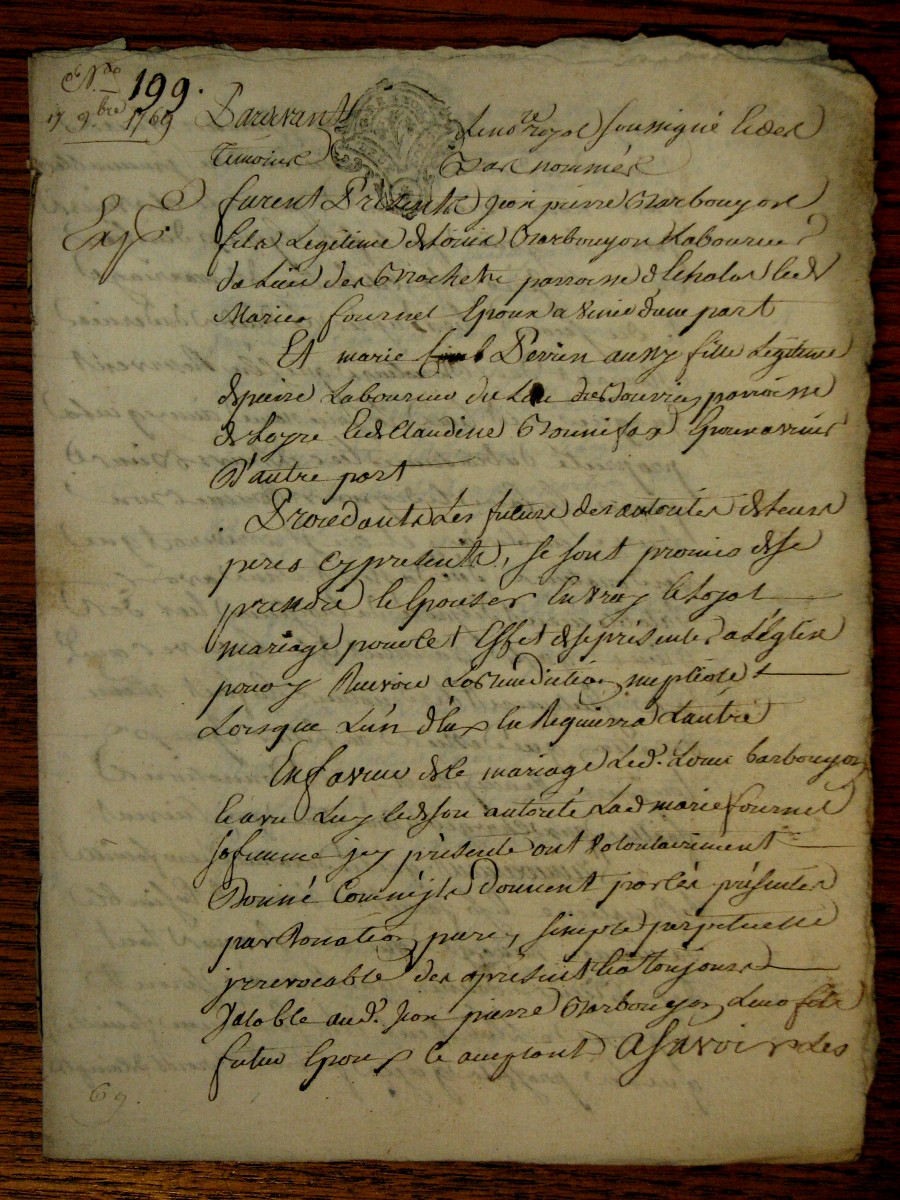 N.º 199.
17 9.bre 1769
Pardevant Le no.re royal soussigné et des
Temoins Bas nommés
furent Presents Jean pierre Barbouyon
fils Legitime de Louis Barbouyon Laboureur
du Lieu des parroisse d'Echalas et de
Marie fournel Epoux avenir d'une part
Et marie Perrin aussy fille Legitime
de pierre Laboureur du Lieu parroisse
de Loyre et de Claudine Bonnefax Epoux avenir
D'autre part
Procedants Les futurs des autorités de Leurs
peres cy presents, se sont promis de se
prendre et Epouser En vray et Loyal
mariage pour cet Effet de se présenter a L'Eglise
pour y Recevoir La Benediction nuptiale
Lorsque L'un d'Eux En Requierra L'autré
En faveur de ce mariage Led. Louis barbouyon
et avec Luy et de son autorité Lad marie fournel
sa femme icy présente ont volontairement
Donné Comme ils Donnent par ces présentes
par Donation pure, simple perpetuelle
irrevocable des aprésent et a Toujours
Valable aud. Jean pierre Barbouyon Leur fils
futur Epoux et acceptant A Savoir Les
69